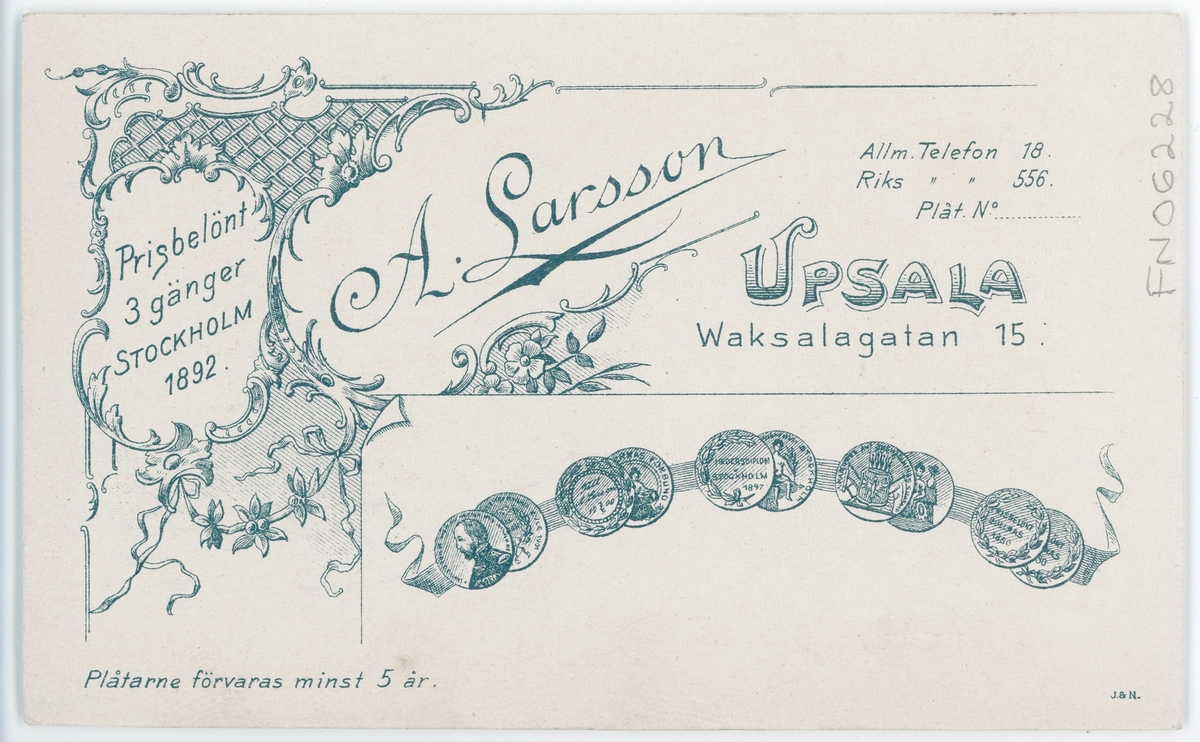 Prisbelönt
3 gänger
STOCKHOLM
1892.
A. Larsson
Allm. Telefon 18.
Riks " " 556.
Plåt. Nº
UPSALA
Waksalagatan 15.
HEDERSDIPLOM
STOCKHOLM
1897
Plåtarne förvaras minst 5 år.
J. & N.
FN06228